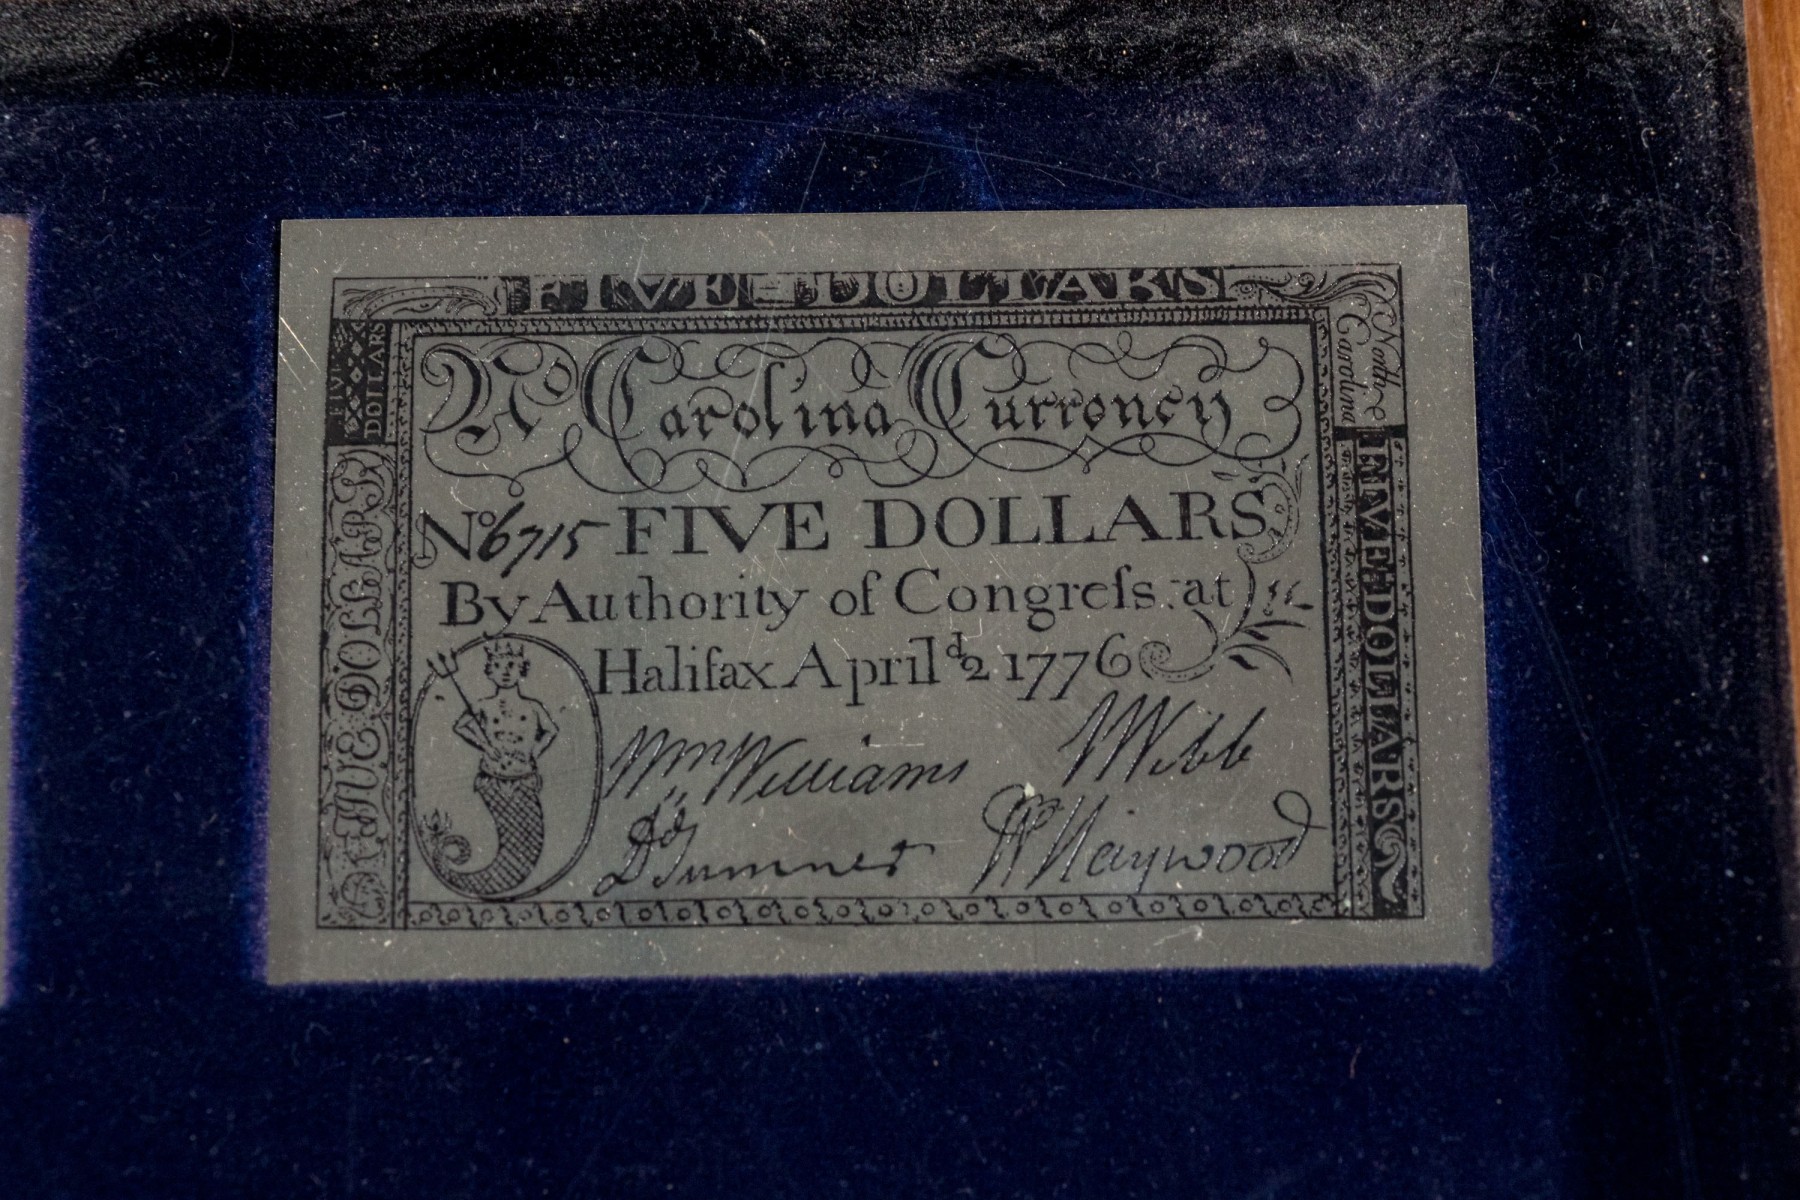 FIVE DOLLARS
FIVE
DOLLARS
North
Carolina
No Carolina Currency
No 6715 FIVE DOLLARS
By Authority of Congreſs: at
Halifax April 2d 1776
Wm Williams J Webb
Jd Sumner W Haywood
FIVE DOLLARS
FIVE DOLLARS